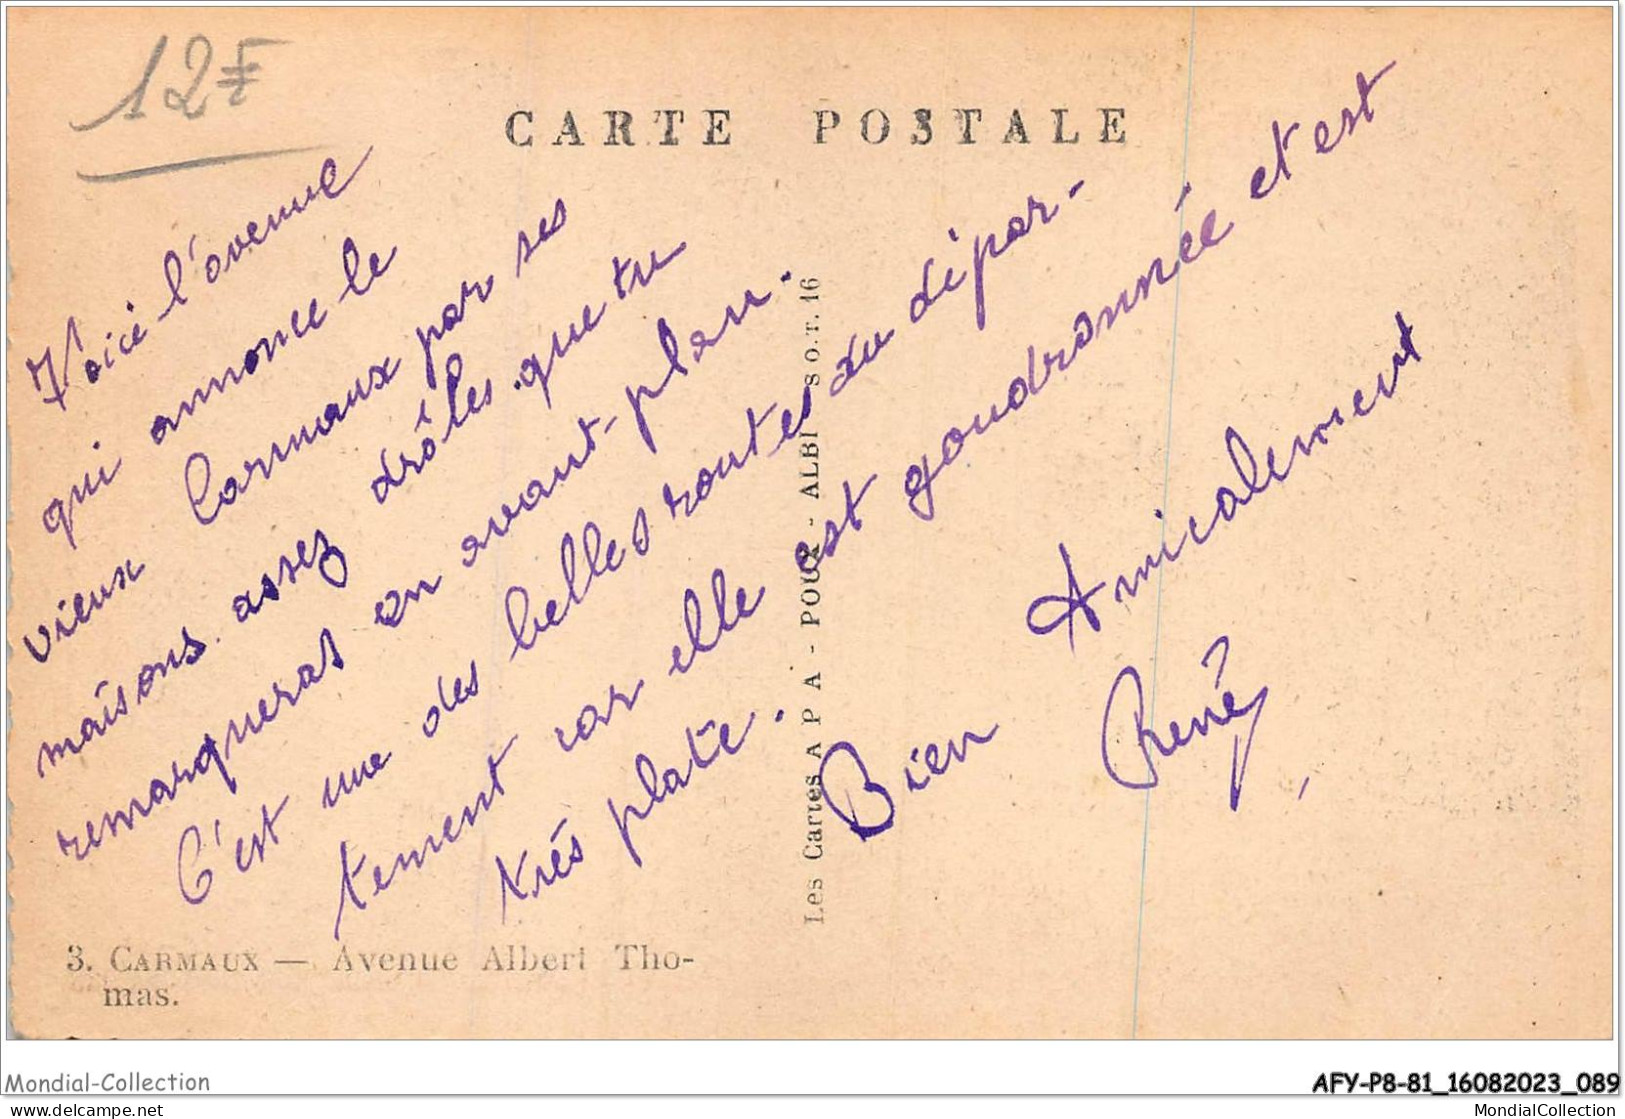 12F
CARTE POSTALE
Voici l'avenue
qui annonce le
vieux Carmaux par ses
maisons assez drôles que tu
remarqueras en avant-plan.
C'est une des belles routes du dépar-
tement car elle est goudronnée et est
très plate.
Bien Amicalement
René
Les Cartes A P A - POUX - ALBI S.O.T. 16
3. CARMAUX — Avenue Albert Tho-
mas.
Mondial-Collection
AFY-P8-81_16082023_089
https://www.delcampe.net
MondialCollection
MondialCollection